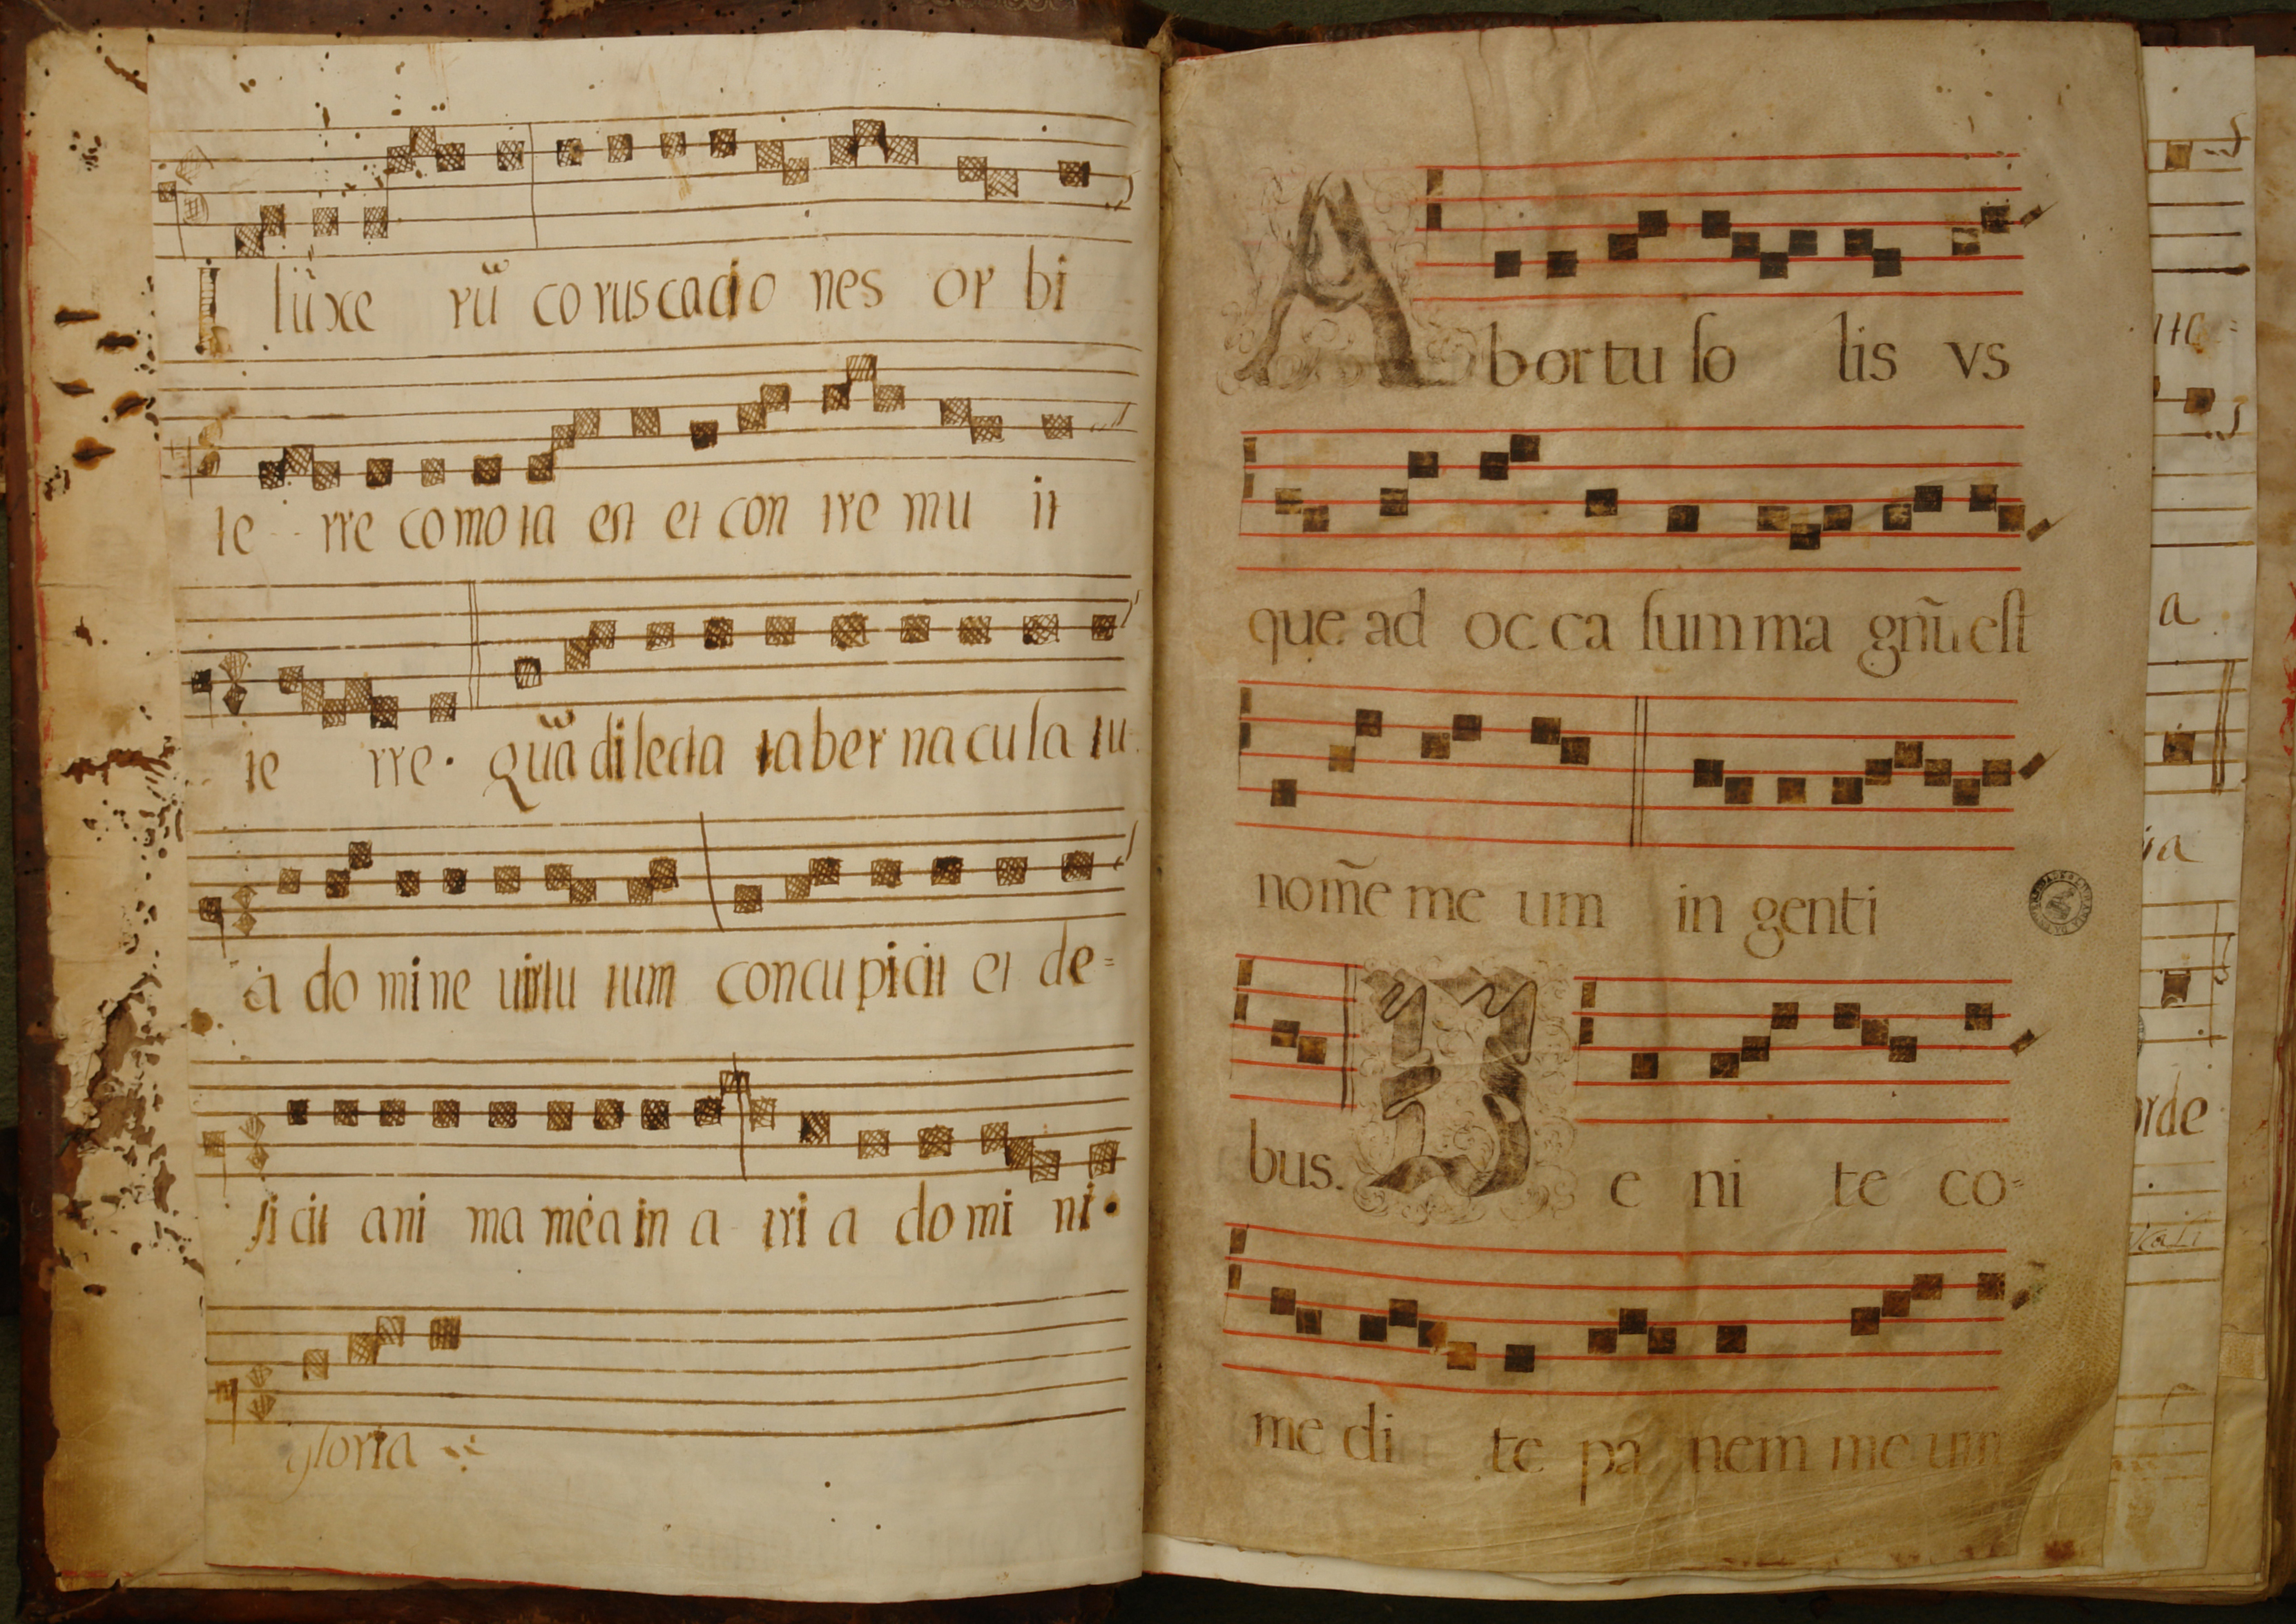 Illũxe rũ co rus cacio nes or bi
te rre co mo ta est et con tre mu it
te rre. Quã di lecta ta ber na cu la tu
a do mi ne uirtu tum concu picit et de=
ficit ani ma mea in a tri a do mi ni.
gloria
Ab or tu ſo lis vs
que ad oc ca ſum ma gnũ eſt
nom̃e me um in genti
bus. Ve ni te co=
me di te pa nem me um
a
ia
orde